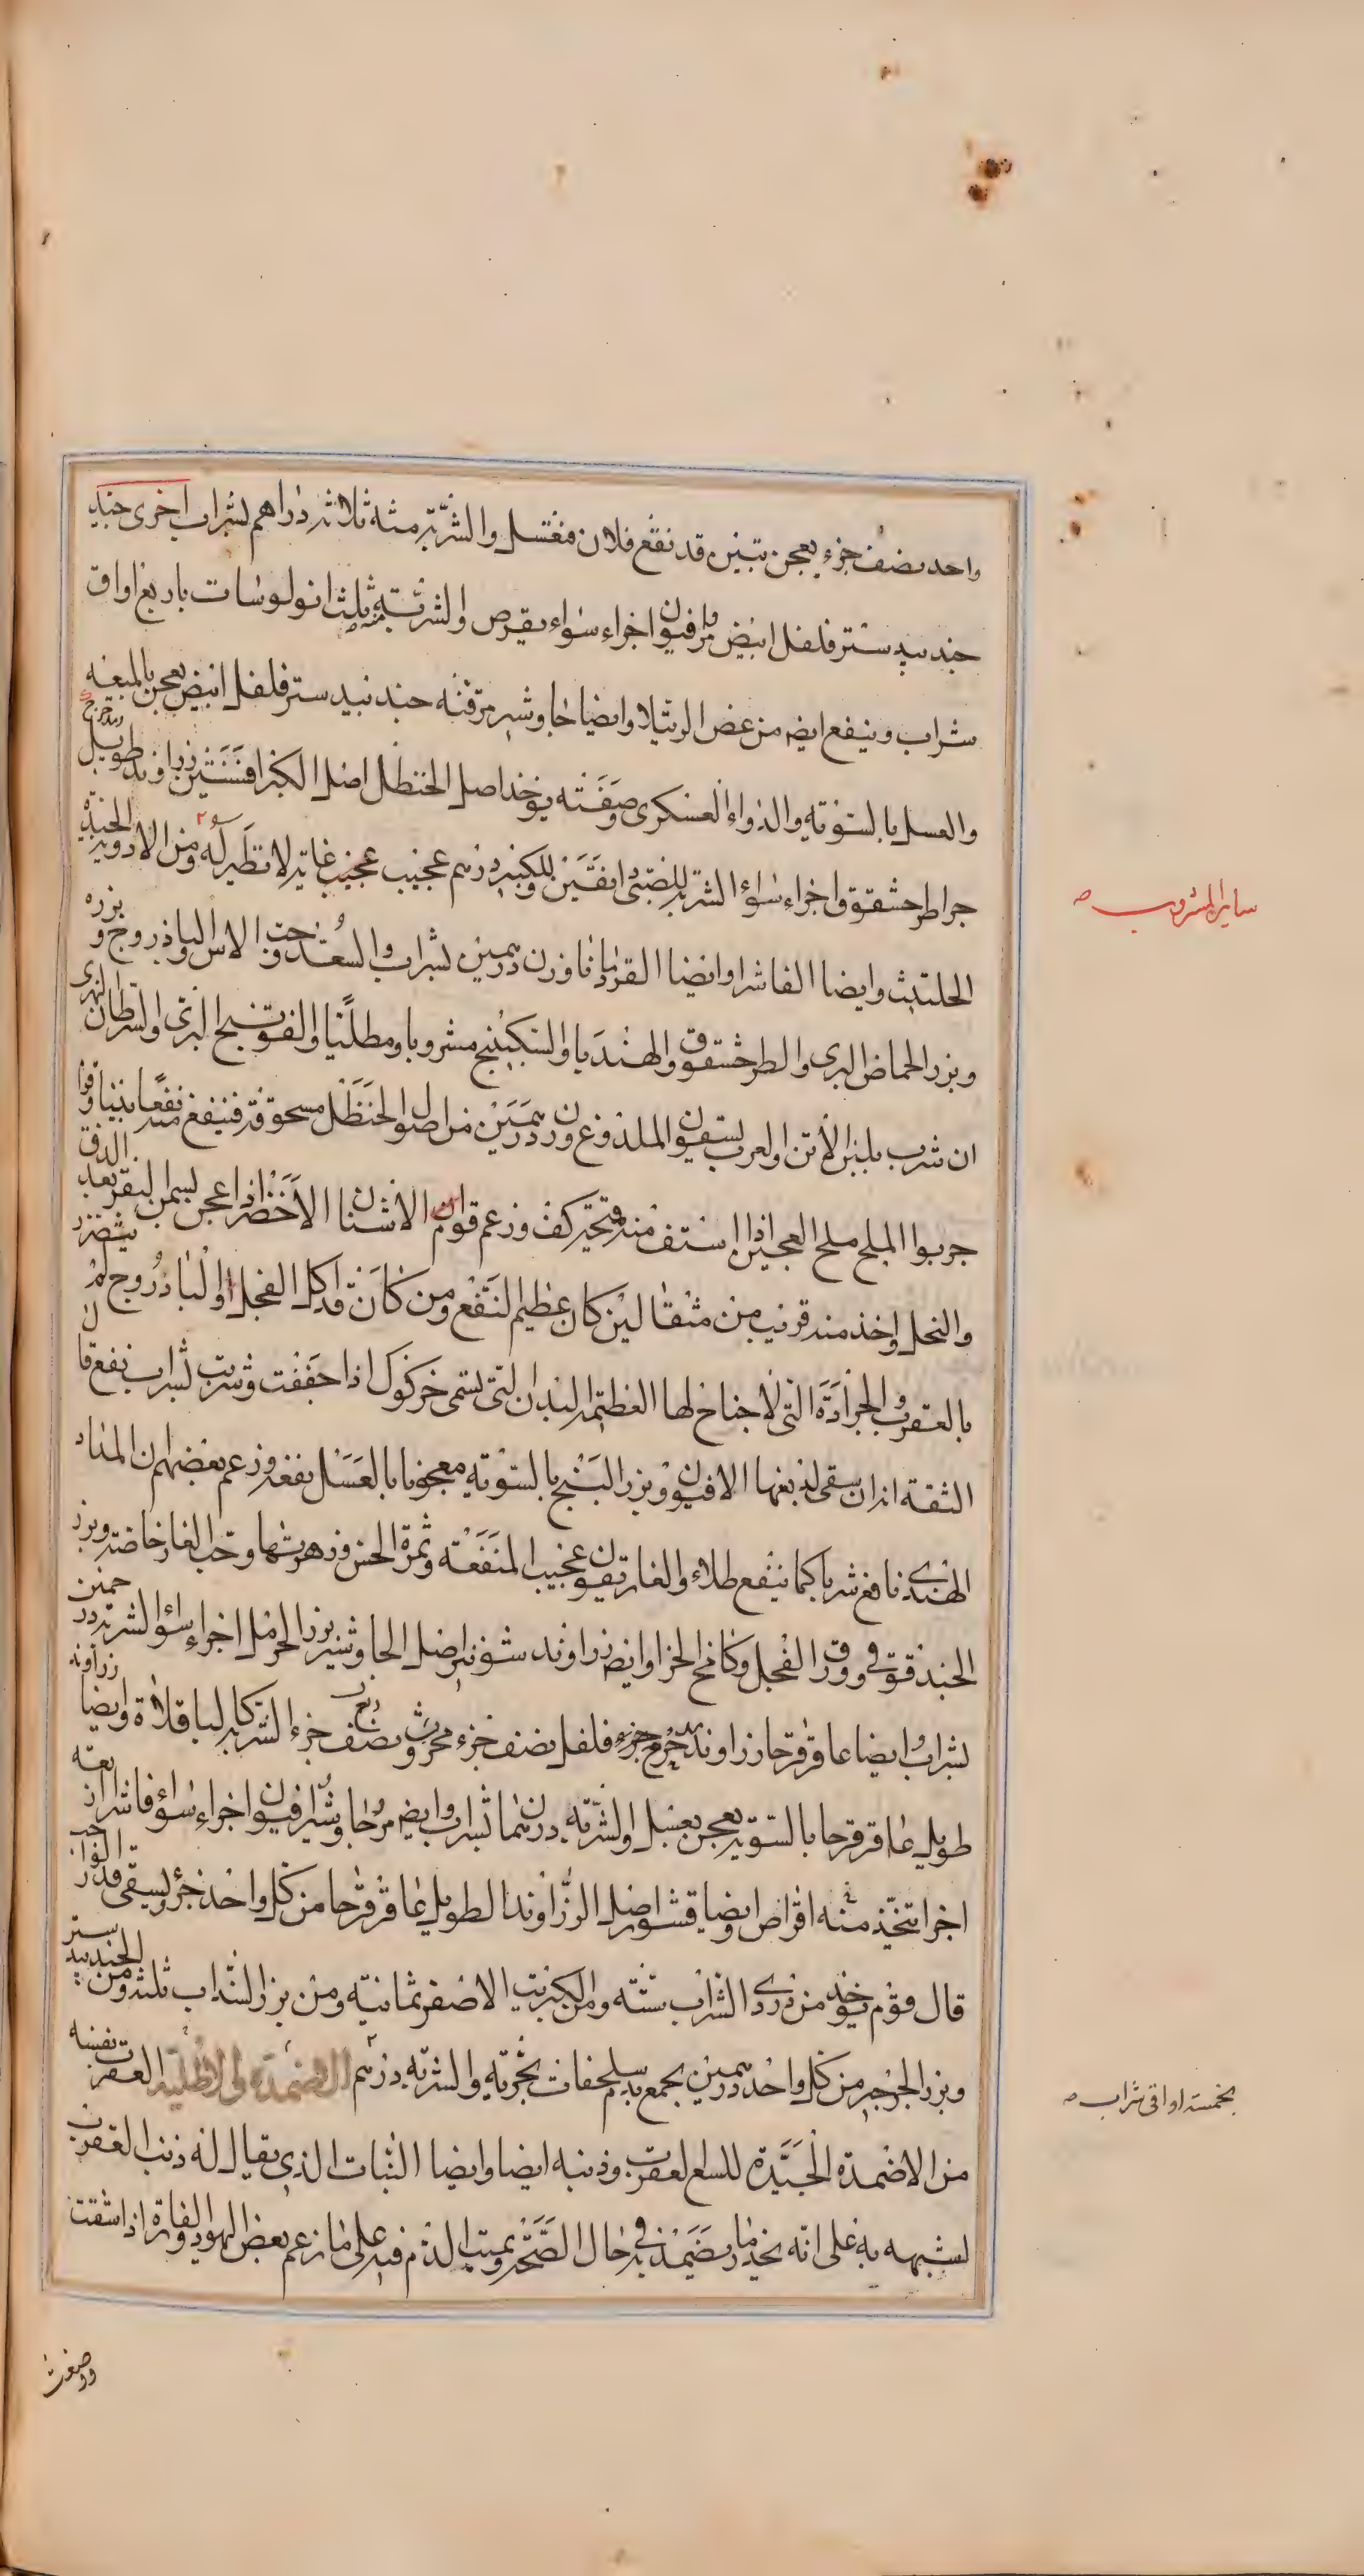 واحد نصف جزء يعجن بتين قد نقع فلان مغتسل والشربة منه ثلاثة دراهم بشراب اخرى جند
جندبيدستر فلفل ابيض مر افيون اجزاء سواء يقرص والشربة منه ثلث انولوسات باربع اواق
شراب وينفع ايضا من عض الرتيلا وايضا جاوشير مر قنه جندبيدستر فلفل ابيض يعجن بالميعه
والعسل بالسوية والدواء العسكرى وصفته يوخذ اصل الحنظل اصل الكبر افسنتين زراوند طويل ومدحرج
طرحشقوق اجزاء سواء الشربة للصبى دانقين وللكبير درهم عجيب عجيب غاية لا نظير له ومن الادوية الجيدة
الحلتيث وايضا الفاشرا وايضا القردمانا وزن درهمين بشراب والسعد وحب الاس والباذروج وبزره
وبزر الحماض البرى والطرحشقوق والهندبا والسكبينج مشروبا ومطليا والفوتنج البرى والسرطان النهرى
ان شرب بلبن الاتن والعرب يسقون الملذوع وزن درهمين من اصول الحنظل مسحوقة فينفع منه نفعا بينا وقوا
جربوا الملح ملح العجين اذا استف منه فتحيركف وزعم قوم ان الاشنان الاخضر اذا عجن بسمن البقر بعد الدق
والنخل واخذ منه قريب من مثقالين كان عظيم النفع ومن كان قد اكل الفجل او الباذروج لم يتضرر
بالعقرب والجرادة التى لا جناح لها العظيمة البدن التى تسمى خركوك اذا جففت وشربت بشراب نفع قال
الثقة انه ان سقى لذيغها الافيون وبزر البنج بالسوية معجونا بالعسل نفعه وزعم بعضهم ان المداد
الهندى نافع شربا كما ينفع طلاء والغاريقون عجيب المنفعة وثمرة الخس وزهرتها وحب الغار خاصة وبزر
الحندقوقى وورق الفجل وكامخ الخزا وايضا زراوند شونيز اصل الجاوشير بزر الحرمل اجزاء سواء الشربة درخمين
بشراب وايضا عاقرقرحا زراوند مدحرج جزء فلفل نصف جزء محروث ربع ونصف جزء الشربة كالباقلاة وايضا زراوند
طويل عاقرقرحا بالسوية يعجن بعسل والشربة درهمان بشراب وايضا مر جاوشير افيون اجزاء سواء فاشرا اربعة
اجزا يتخذ منه اقراص وايضا قشور اصل الزراوند الطويل عاقرقرحا من كل واحد جزؤ يسقى قدر الواجب
قال قوم يوخذ من دردى الشراب ستة ومن الكبريت الاصفر ثمانية ومن بزر السذاب ثلثة ومن الجندبيدستر
وبزر الجرجير من كل واحد درهمين يجمع بدم سلحفات بحرية والشربة درهم الاضمدة والاطلية العقرب نفسه
من الاضمدة الجيدة للسع العقرب وذنبه ايضا وايضا النبات الذى يقال له ذنب العقرب
لشبهه به على انه يخدر ما يضمد به فى حال الصحة ويميت الدم فيه على ما زعم بعض اليهود والفارة اذا شقت
ووضعت
ساير المشروب صـ
بخمسة اواقى شراب صـ